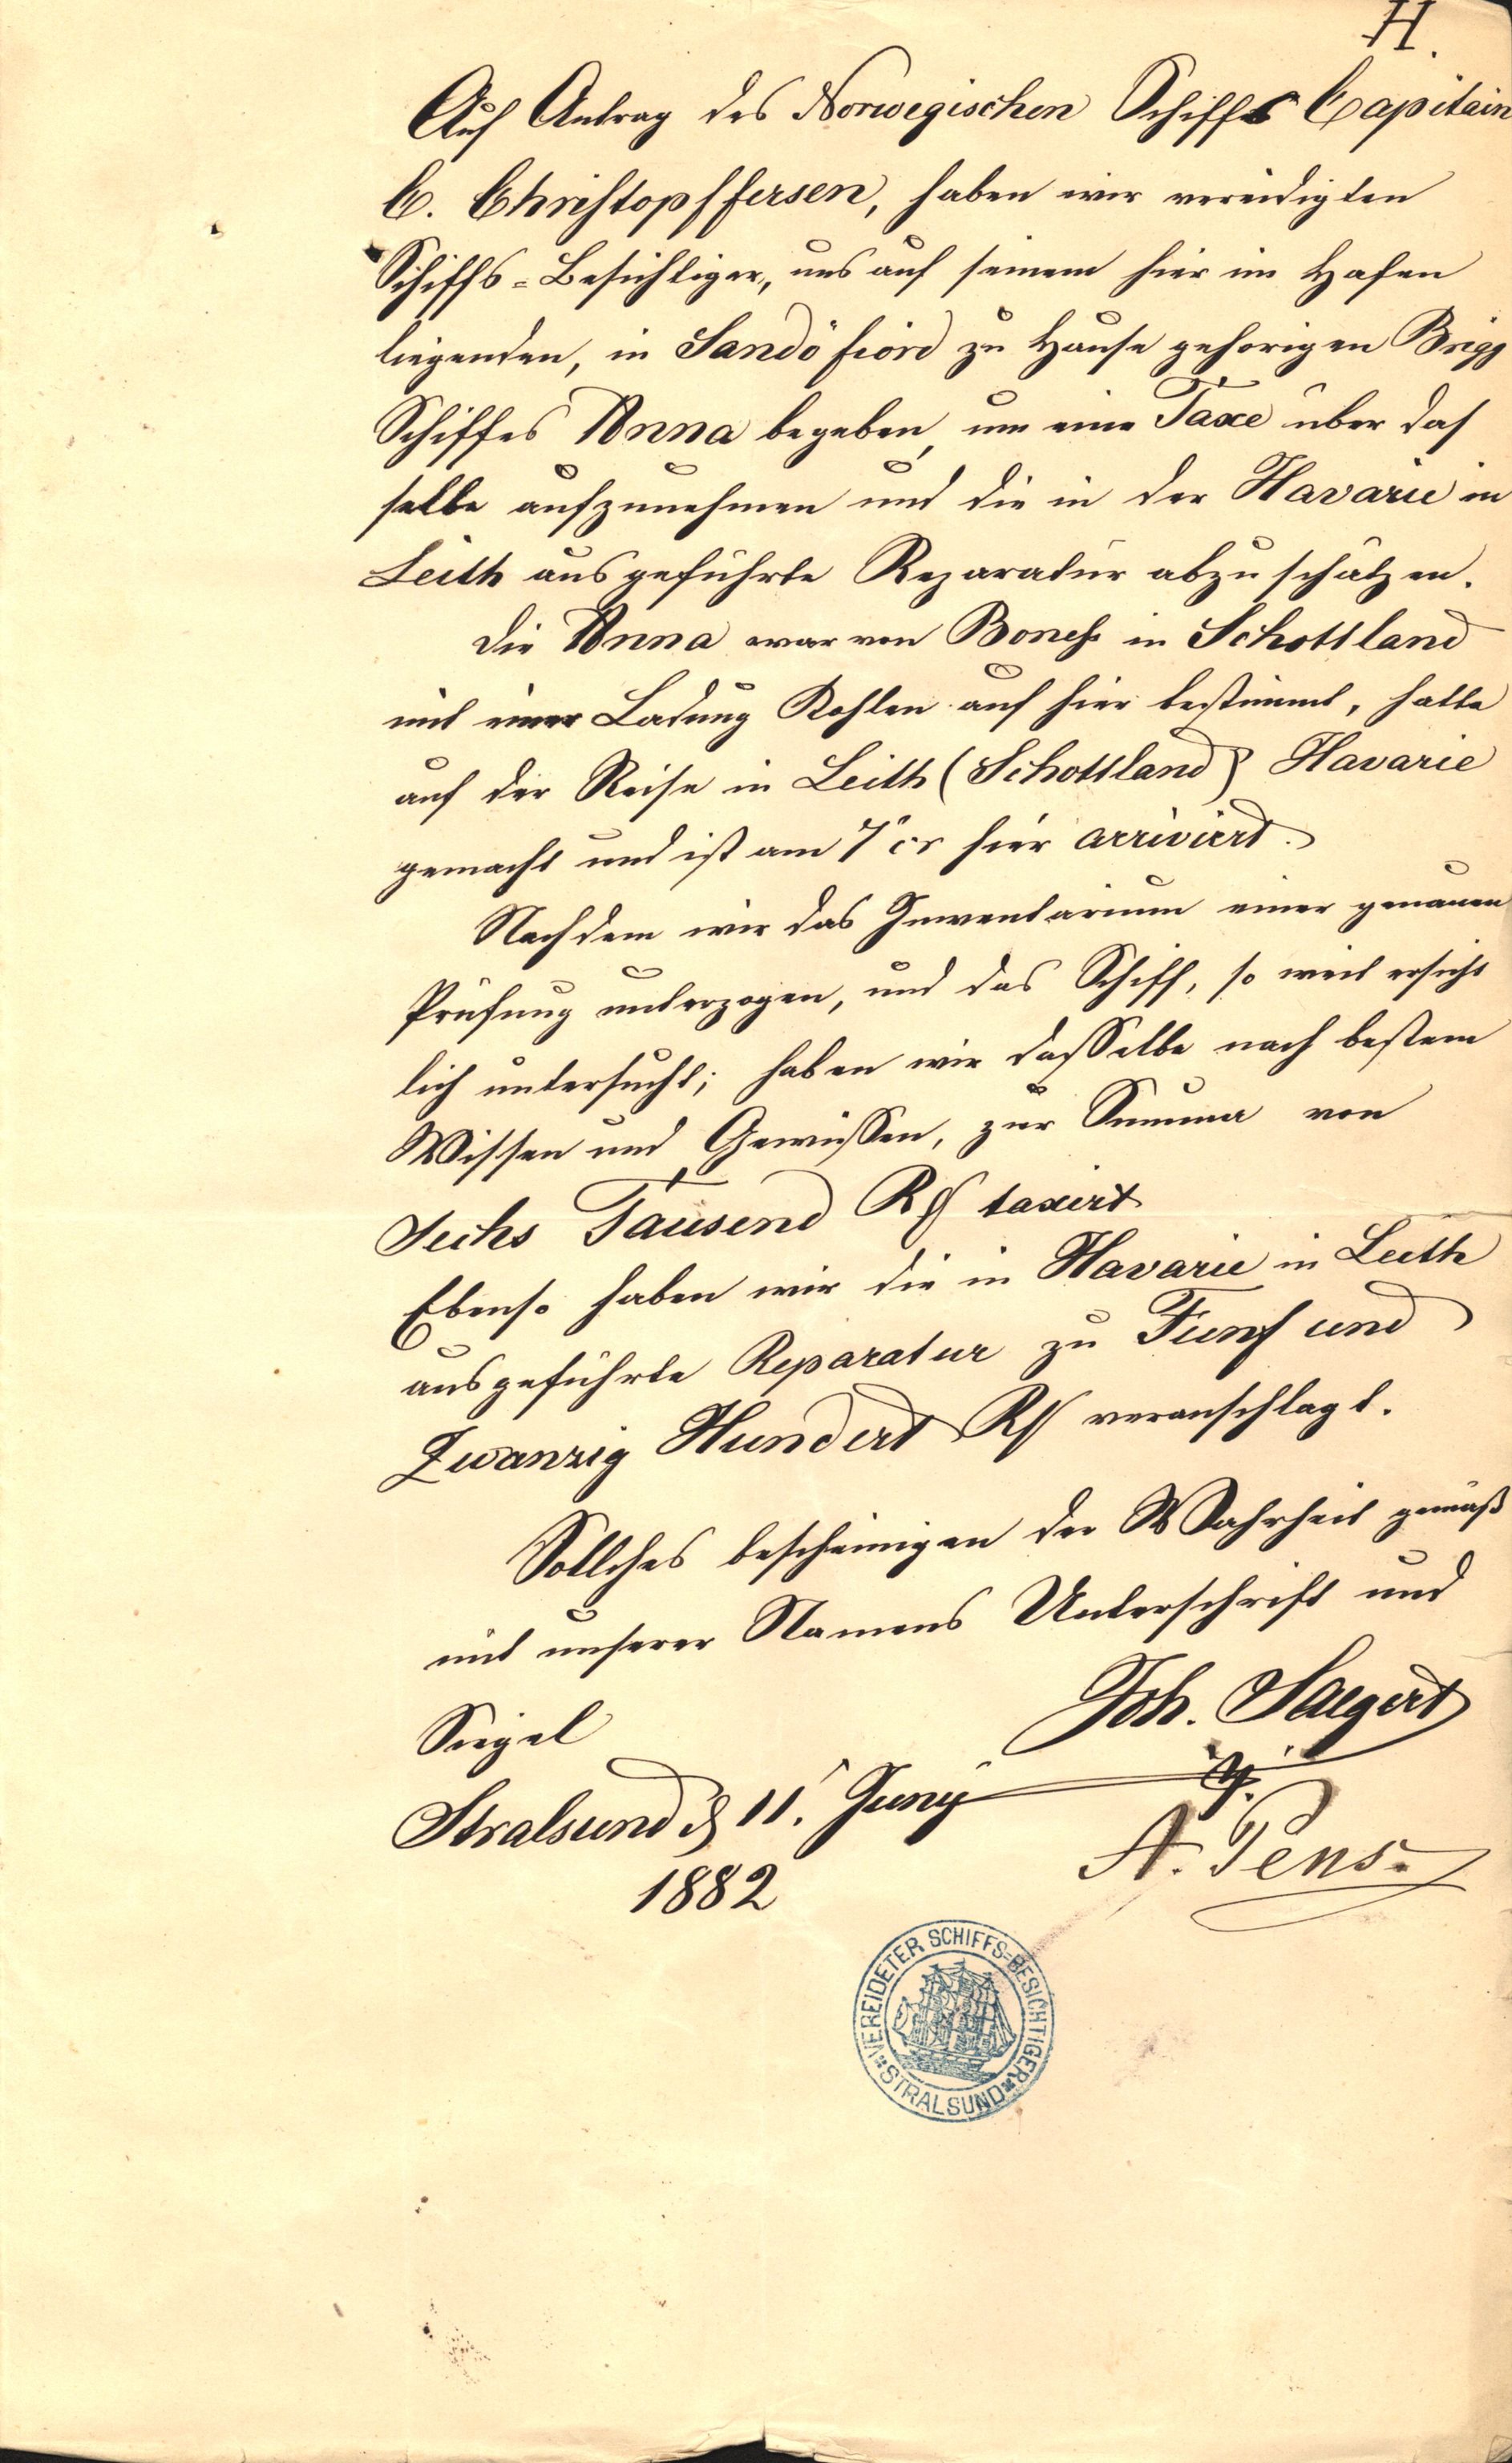 H.
Auf Antrag des Norwegischen Schiffs Capitain
C. Christopffersen, haben wir vereidigten
Schiffs=Besichtiger, uns auf seinem hier im Hafen
liegenden, in Sandöfiord zu Hause gehorigen Brigg
Schiffes Anna begeben, um eine Taxe über das
selbe aufzunehmen und die in der Havarie in
Leith ausgeführte Reparatur abzuschätzen.
Die Anna war von Boness in Schottland
mit einer Ladung Kohlen auf hier bestimmt, hatte
auf der Reise in Leith (Schottland) Havarie
gemacht und ist am 7 cr hier arrivirt.
Nachdem wir das Inventarium einer genauen
Prüfung unterzogen, und das Schiff, so weit ersicht
lich untersucht; haben wir dasselbe nach bestem
Wissen und Gewissen, zur Summa von
Sechs Tausend RM taxirt
Ebenso haben wir die in Havarie in Leith
ausgeführte Reparatur zu Fünf und
Zwanzig Hundert RM veranschlagt.
Sollches bescheinigen der Wahrheit gemäß
mit unserer Namens Unterschrift und
Siegel
Joh. Saegert
Stralsund d 11. Juny
A. Pens.
1882
VEREIDETER SCHIFFS=BESICHTIGER
STRALSUND